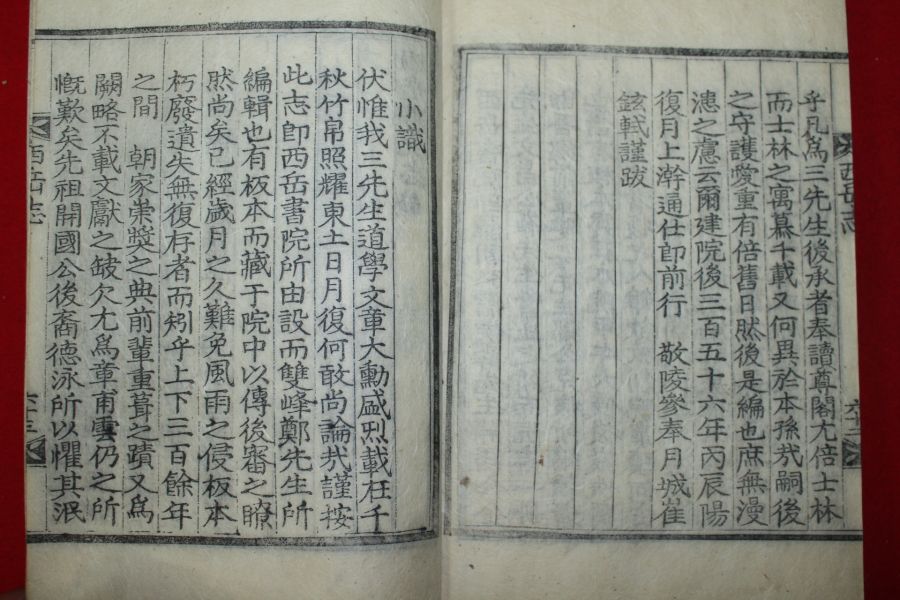 乎凡爲三先生後承者奉讀尊閣尤倍士林
而士林之寓慕千載又何異於本孫哉嗣後
之守護愛重有倍舊日然後是編也庶無漫
漶之慮云爾建院後三百五十六年丙辰陽
復月上澣通仕郎前行 敬陵參奉月城崔
鉉軾謹跋
西岳志
六十二
小識
伏惟我三先生道學文章大勳盛烈載在千
秋竹帛照耀東土日月復何敢尚論哉謹按
此志卽西岳書院所由設而雙峰鄭先生所
編輯也有板本而藏于院中以傳後審之瞭
然尚矣已經歲月之久難免風雨之侵板本
朽廢遺失無復存者而矧乎上下三百餘年
之間 朝家崇奬之典前輩重葺之蹟又爲
闕略不載文獻之缺欠尤爲章甫雲仍之所
慨歎矣先祖開國公後裔德泳所以懼其泯
西岳志
六十三